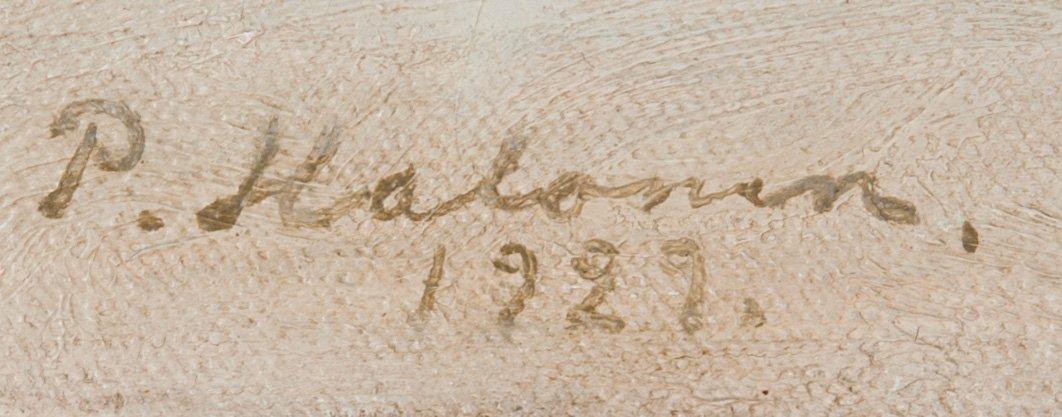 P. Halonen.
1929.